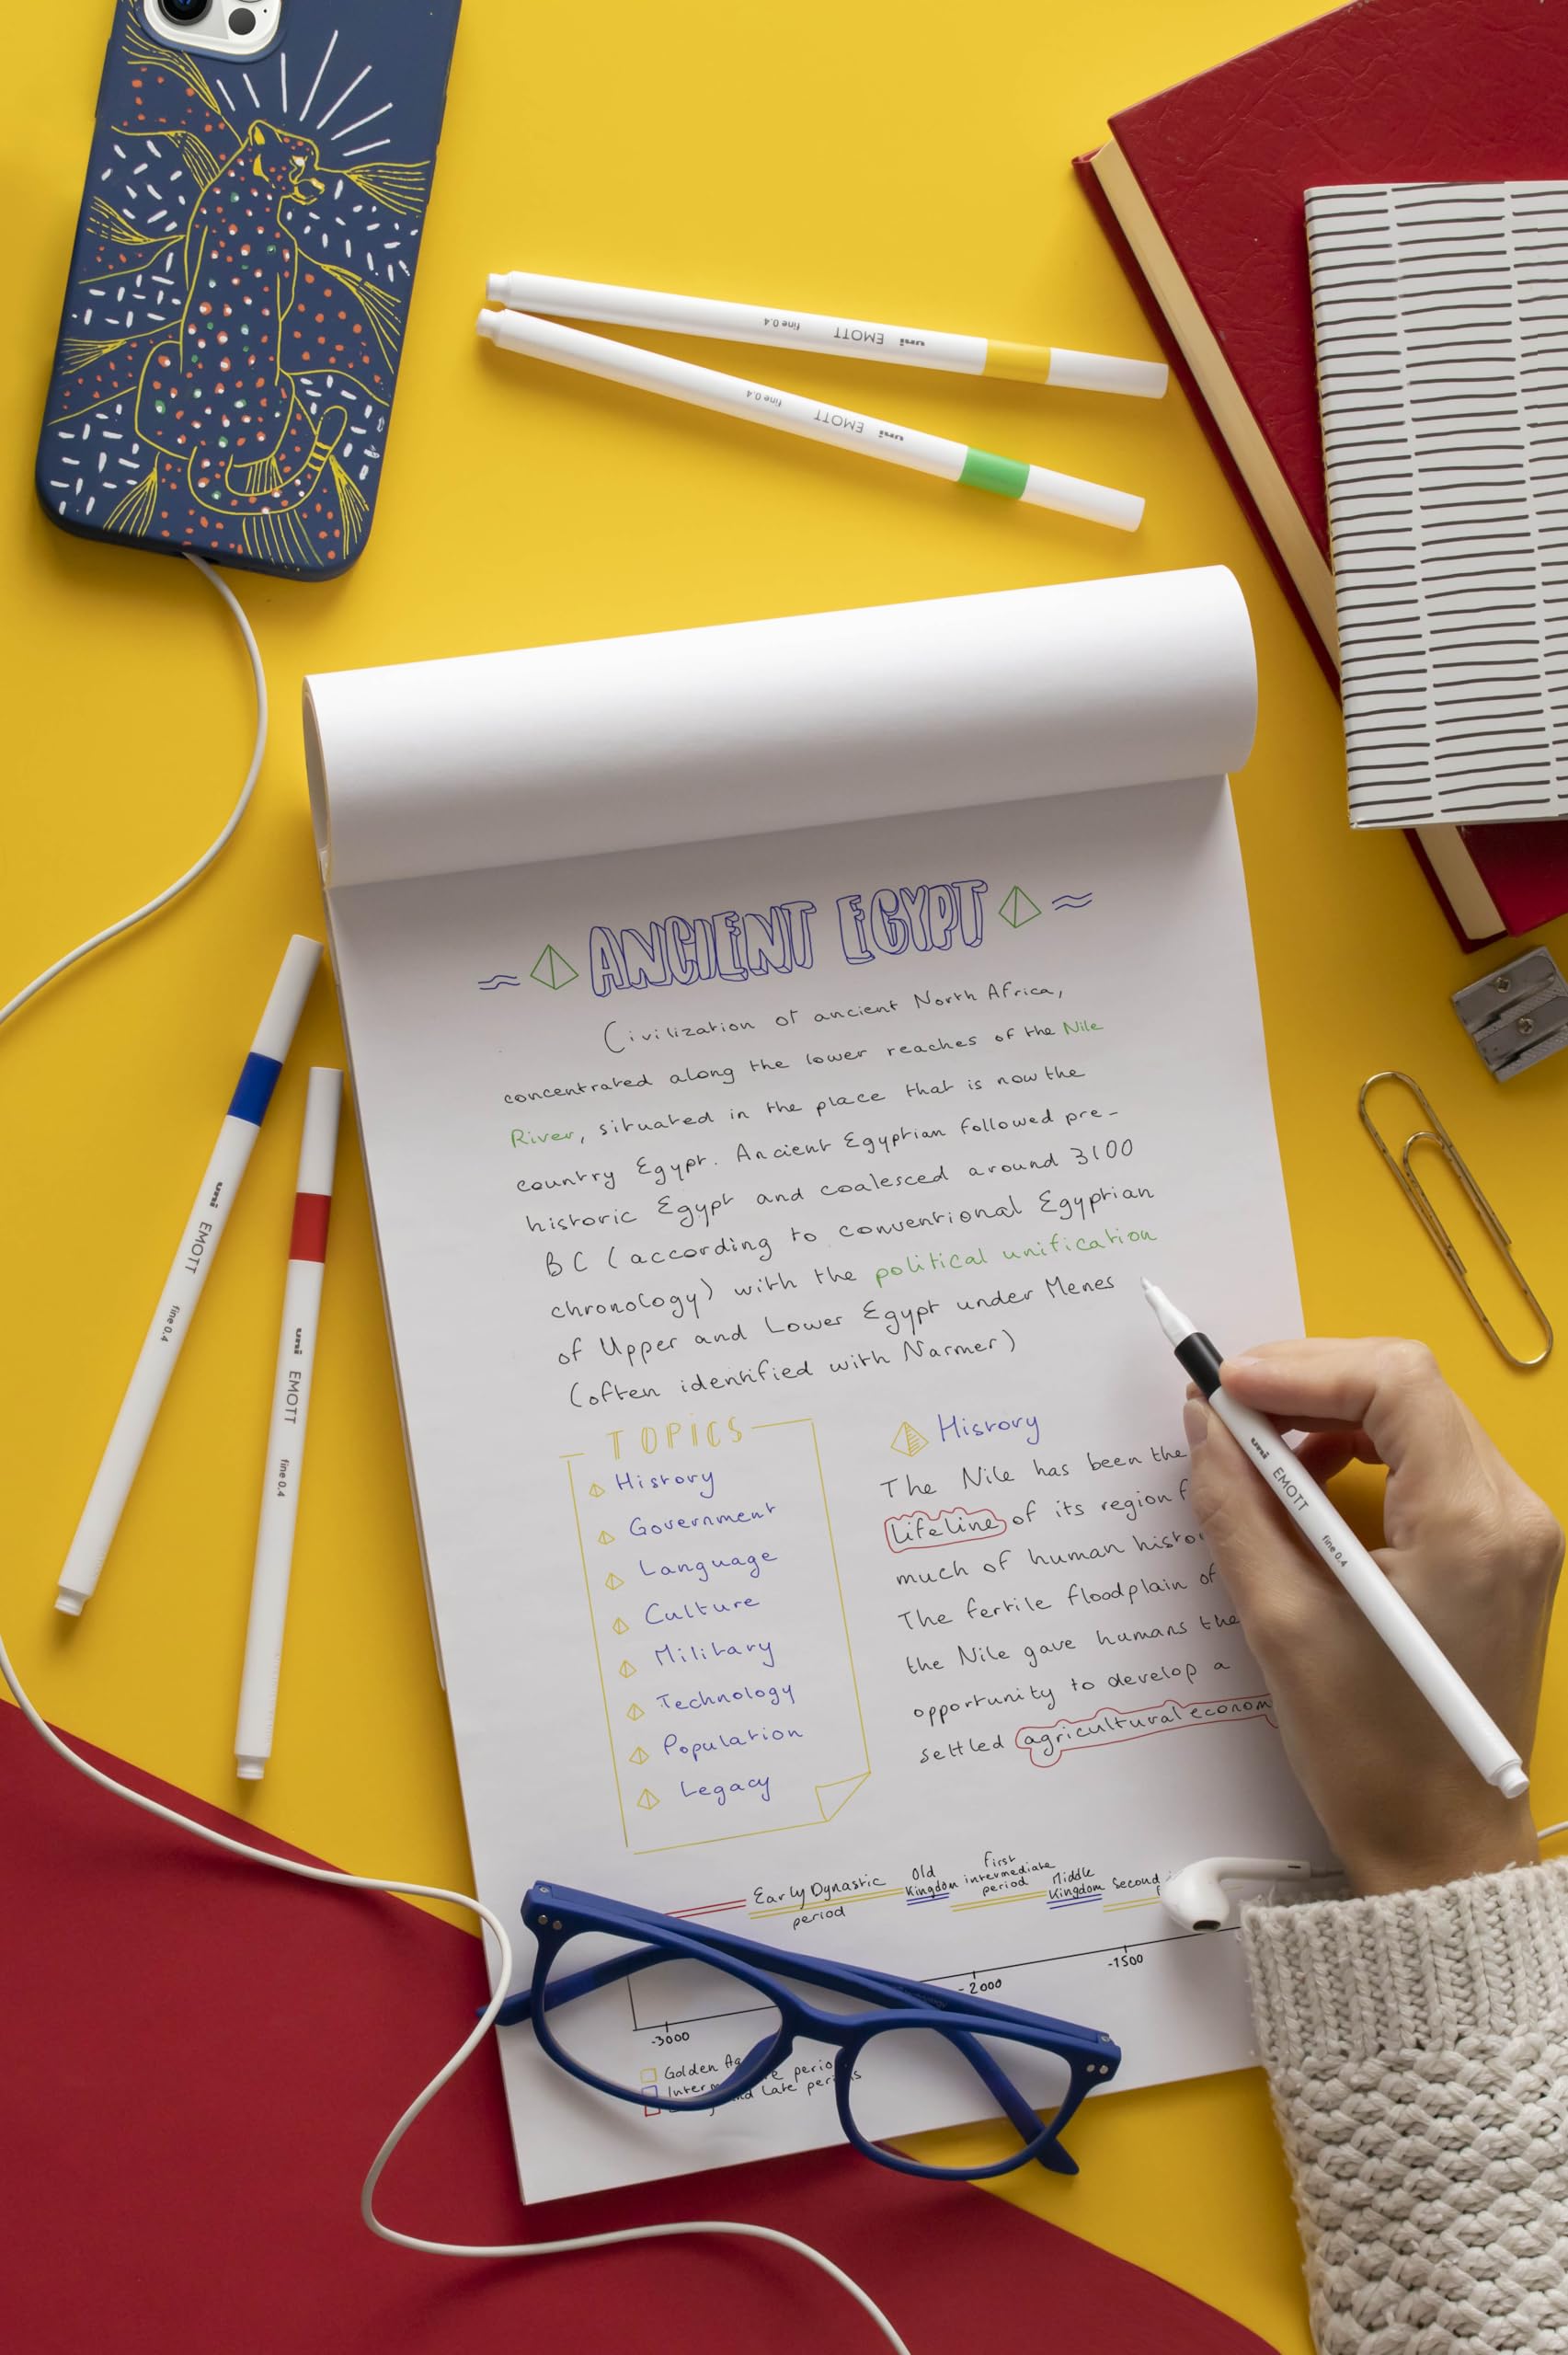 uni EMOTT fine 0.4
uni EMOTT fine 0.4
ANCIENT EGYPT
Civilization of ancient North Africa,
concentrated along the lower reaches of the Nile
River, situated in the place that is now the
country Egypt. Ancient Egyptian followed pre-
historic Egypt and coalesced around 3100
BC (according to conventional Egyptian
chronology) with the political unification
of Upper and Lower Egypt under Menes
(often identified with Narmer)
TOPICS
History
Government
Language
Culture
Military
Technology
Population
Legacy
History
The Nile has been the
lifeline of its region
much of human
The fertile floodplain of
the Nile gave humans the
opportunity to develop a
settled agricultural
uni EMOTT fine 0.4
uni EMOTT fine 0.4
uni EMOTT fine 0.4
Early Dynastic
period
Old
Kingdom
First
intermediate
period
Middle
Kingdom
Second
-3000
-2000
-1500
Golden
Late periods